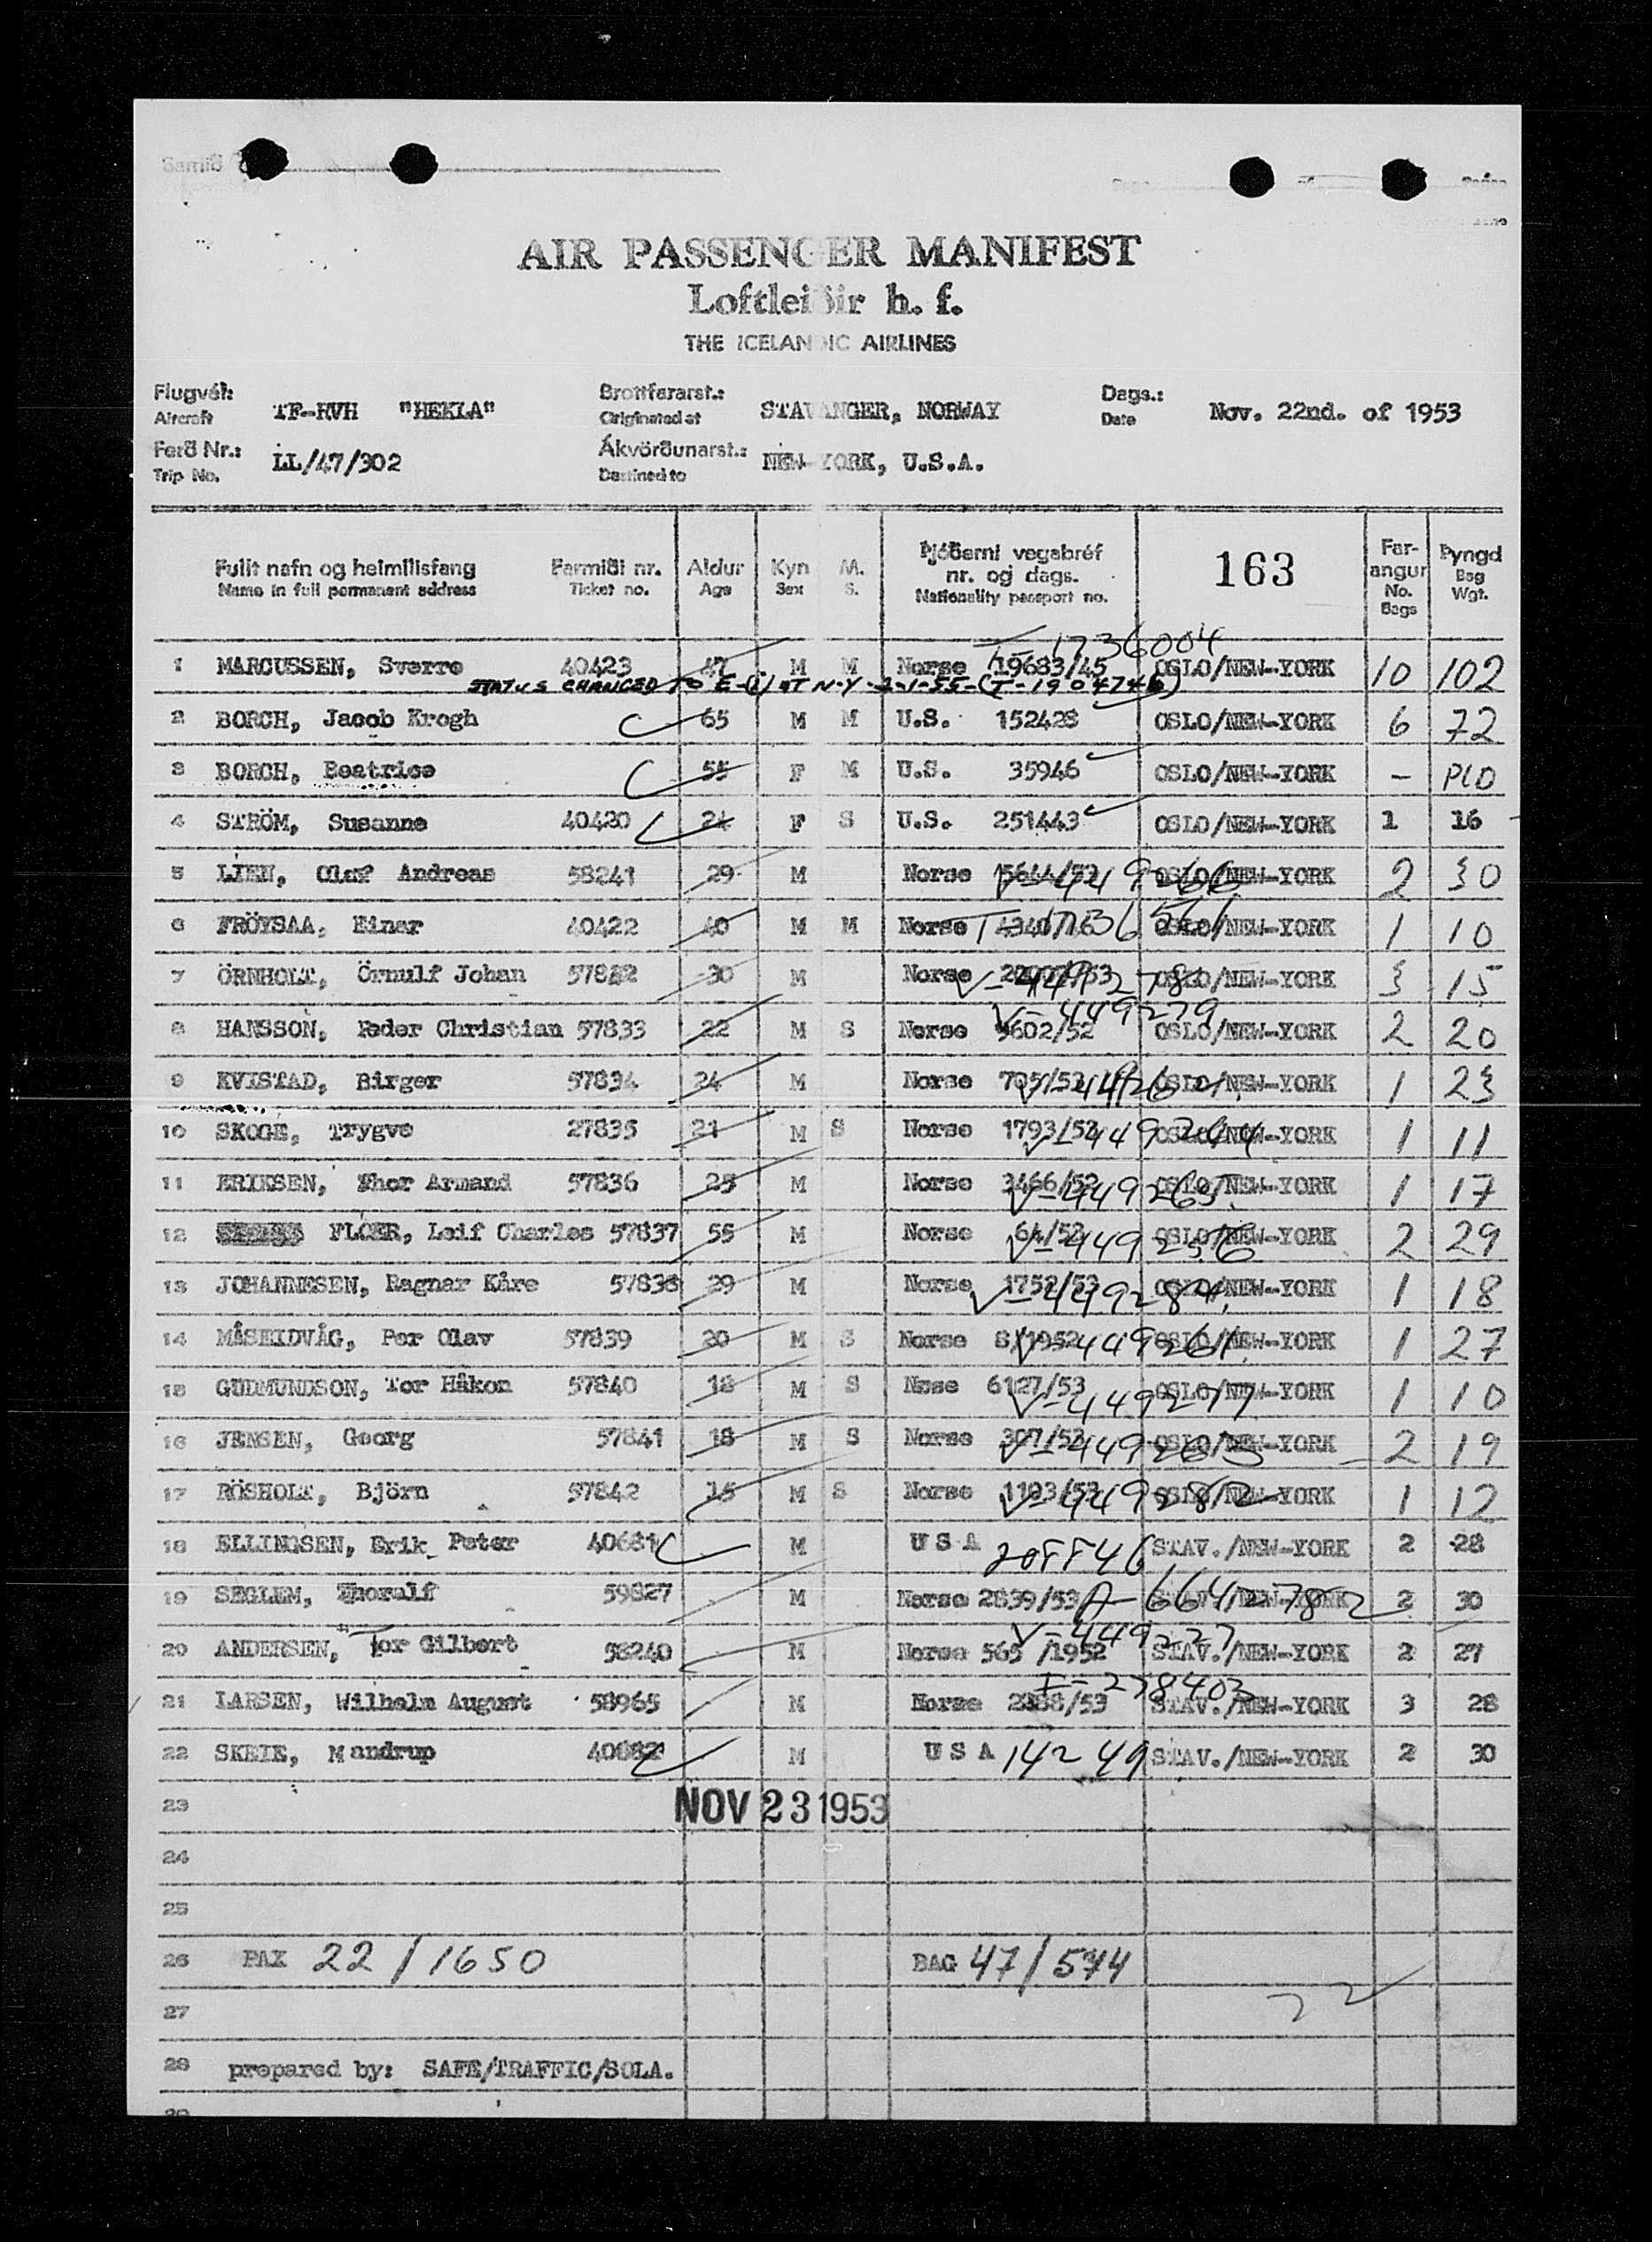 Samið
AIR PASSENGER MANIFEST
Loftleiðir h. f.
THE ICELANDIC AIRLINES
Flugvél: Brottfararst.: Dags.:
Aircraft TF-RVH "HEKLA" Originated at STAVANGER, NORWAY Date Nov. 22nd. of 1953
Ferð Nr.: Ákvörðunarst.:
Trip No. LL/47/302 Destined to NEW-YORK, U.S.A.
Fullt nafn og heimilisfang Farmiði nr. Aldur Kyn M. Þjóðerni vegabréf nr. og dags. 163 Far-angur Þyngd
Name in full permanent address Ticket no. Age Sex S. Nationality passport no. No. Bags Bag Wgt.
T-1736004
1 MARCUSSEN, Sverre 40423 47 M M Norse 19683/45 OSLO/NEW-YORK 10 102
STATUS CHANGED TO E-(1) AT N.Y. 2-1-55-(T-1904746)
2 BORCH, Jacob Krogh 65 M M U.S. 152428 OSLO/NEW-YORK 6 72
3 BORCH, Beatrice 55 F M U.S. 35946 OSLO/NEW-YORK –
4 STRÖM, Susanne 40420 21 F S U.S. 251443 OSLO/NEW-YORK 1 16
5 LIEN, Olaf Andreas 58241 29 M Norse OSLO/NEW-YORK 2 30
6 FRÖYSAA, Einar 40422 40 M M Norse OSLO/NEW-YORK 1 10
7 ÖRNHOLT, Örnulf Johan 57832 30 M Norse OSLO/NEW-YORK 3 15
V-449279
8 HANSSON, Peder Christian 57833 22 M S Norse 9602/52 OSLO/NEW-YORK 2 20
9 KVISTAD, Birger 57834 24 M Norse OSLO/NEW-YORK 1 23
10 SKOGE, Trygve 27835 21 M S Norse 1793/52 V-449244 OSLO/NEW-YORK 1 11
11 ERIKSEN, Thor Armand 57836 25 M Norse 3466/52 V-449265 OSLO/NEW-YORK 1 17
12 FLÖER, Leif Charles 57837 55 M Norse 64/52 V-449256 OSLO/NEW-YORK 2 29
13 JOHANNESEN, Ragnar Kåre 57838 29 M Norse 1752/53 V-449284 OSLO/NEW-YORK 1 18
14 MÅSEIDVÅG, Per Olav 57839 20 M S Norse V-449261 OSLO/NEW-YORK 1 27
15 GUDMUNDSON, Tor Håkon 57840 18 M S Nose 6127/53 V-449277 OSLO/NEW-YORK 1 10
16 JENSEN, Georg 57841 18 M S Norse 307/52 V-449263 OSLO/NEW-YORK 2 19
17 RÖSHOLT, Björn 57842 15 M S Norse V-449282 OSLO/NEW-YORK 1 12
18 ELLINGSEN, Erik Peter 40681 M U S A STAV./NEW-YORK 2 28
19 SEGLEM, Thoralf 59827 M Norse 2839/53 STAV./NEW-YORK 2 30
V-449227
20 ANDERSEN, Tor Gilbert 58240 M Norse 565 /1952 STAV./NEW-YORK 2 27
I-278403
21 LARSEN, Wilhelm August 58965 M Norse STAV./NEW-YORK 3 28
22 SKEIE, Mandrup 40682 M U S A 14249 STAV./NEW-YORK 2 30
23 NOV 23 1953
24
25
26 PAX 22/1650 BAG 47/544
27 22
28 prepared by: SAFE/TRAFFIC/SOLA.